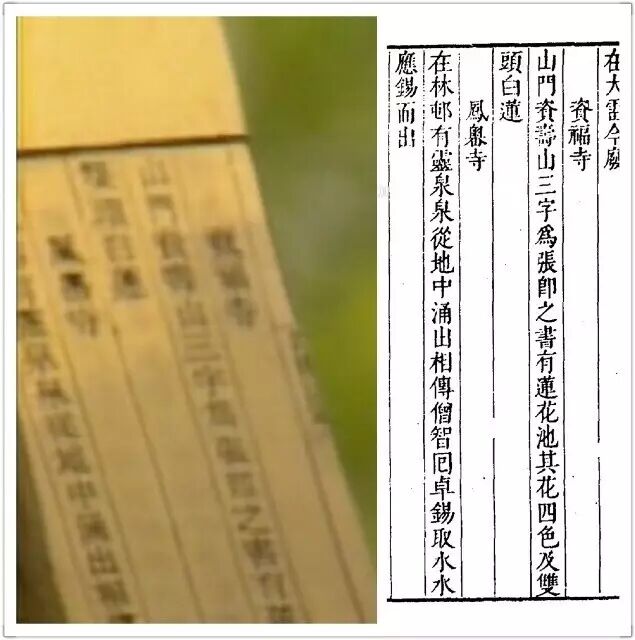 福寺
山門資壽山三字爲張即之書有
頭白蓮
寺
泉從地中涌出相
在大雷今廢
資福寺
山門資壽山三字爲張卽之書有蓮花池其花四色及雙
頭白蓮
鳳寺
在林邨有靈泉泉從地中涌出相傳僧智囘卓錫取水水
應錫而出